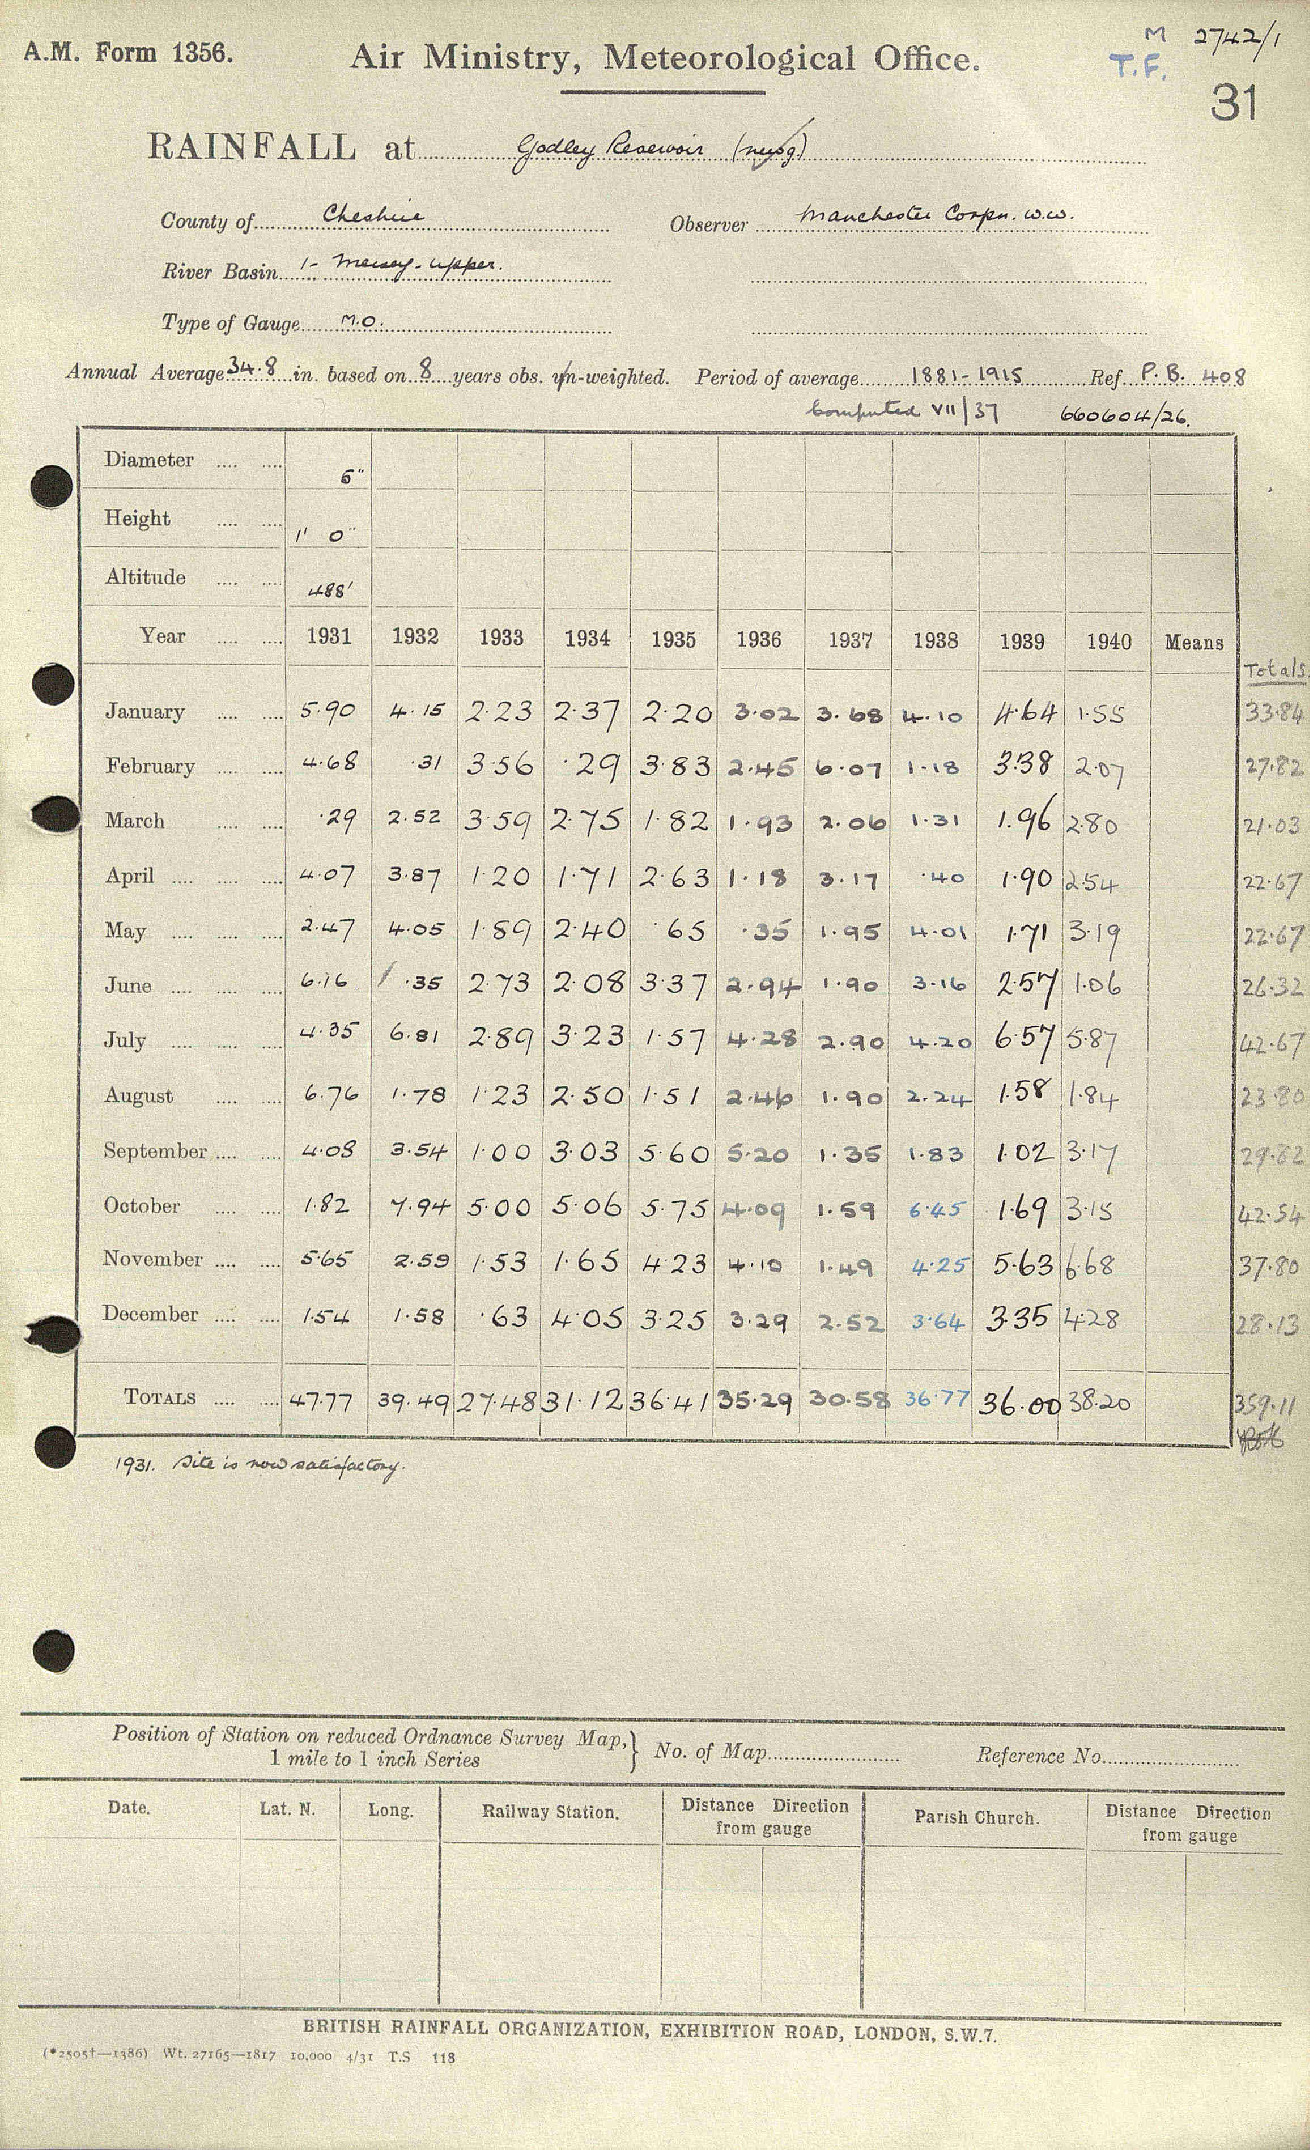 A.M. Form 1356.
Air Ministry, Meteorological Office.
M 2742/1
T.F.
31
RAINFALL at Godley Reservoir
County of Cheshire Observer Manchester Corpn. W.W.
River Basin 1- Mersey-Upper.
Type of Gauge M.O.
Annual Average 34.8 in. based on 8 years obs. un-weighted. Period of average 1881-1915 Ref P.B. 408
Computed VII/37 660604/26.
Diameter 5"
Height 1' 0"
Altitude 488'
Year 1931 1932 1933 1934 1935 1936 1937 1938 1939 1940 Means Totals.
January 5.90 4.15 2.23 2.37 2.20 3.02 3.68 4.10 4.64 1.55 33.84
February 4.68 .31 3.56 .29 3.83 2.45 6.07 1.18 3.38 2.07 27.82
March .29 2.52 3.59 2.75 1.82 1.93 2.06 1.31 1.96 2.80 21.03
April 4.07 3.87 1.20 1.71 2.63 1.18 3.17 .40 1.90 2.54 22.67
May 2.47 4.05 1.89 2.40 .65 .35 1.95 4.01 1.71 3.19 22.67
June 6.16 .35 2.73 2.08 3.37 2.94 1.90 3.16 2.57 1.06 26.32
July 4.35 6.81 2.89 3.23 1.57 4.28 2.90 4.20 6.57 5.87 42.67
August 6.76 1.78 1.23 2.50 1.51 2.46 1.90 2.24 1.58 1.84 23.80
September 4.08 3.54 1.00 3.03 5.60 5.20 1.35 1.83 1.02 3.17 29.82
October 1.82 7.94 5.00 5.06 5.75 4.09 1.59 6.45 1.69 3.15 42.54
November 5.65 2.59 1.53 1.65 4.23 4.10 1.49 4.25 5.63 6.68 37.80
December 1.54 1.58 .63 4.05 3.25 3.29 2.52 3.64 3.35 4.28 28.13
TOTALS 47.77 39.49 27.48 31.12 36.41 35.29 30.58 36.77 36.00 38.20 359.11
1931. Site is now satisfactory.
Position of Station on reduced Ordnance Survey Map, 1 mile to 1 inch Series } No. of Map Reference No.
Date. Lat. N. Long. Railway Station. Distance Direction from gauge Parish Church. Distance Direction from gauge
BRITISH RAINFALL ORGANIZATION, EXHIBITION ROAD, LONDON, S.W.7.
(*2505t—1386) Wt. 27165—1817 10,000 4/31 T.S 118